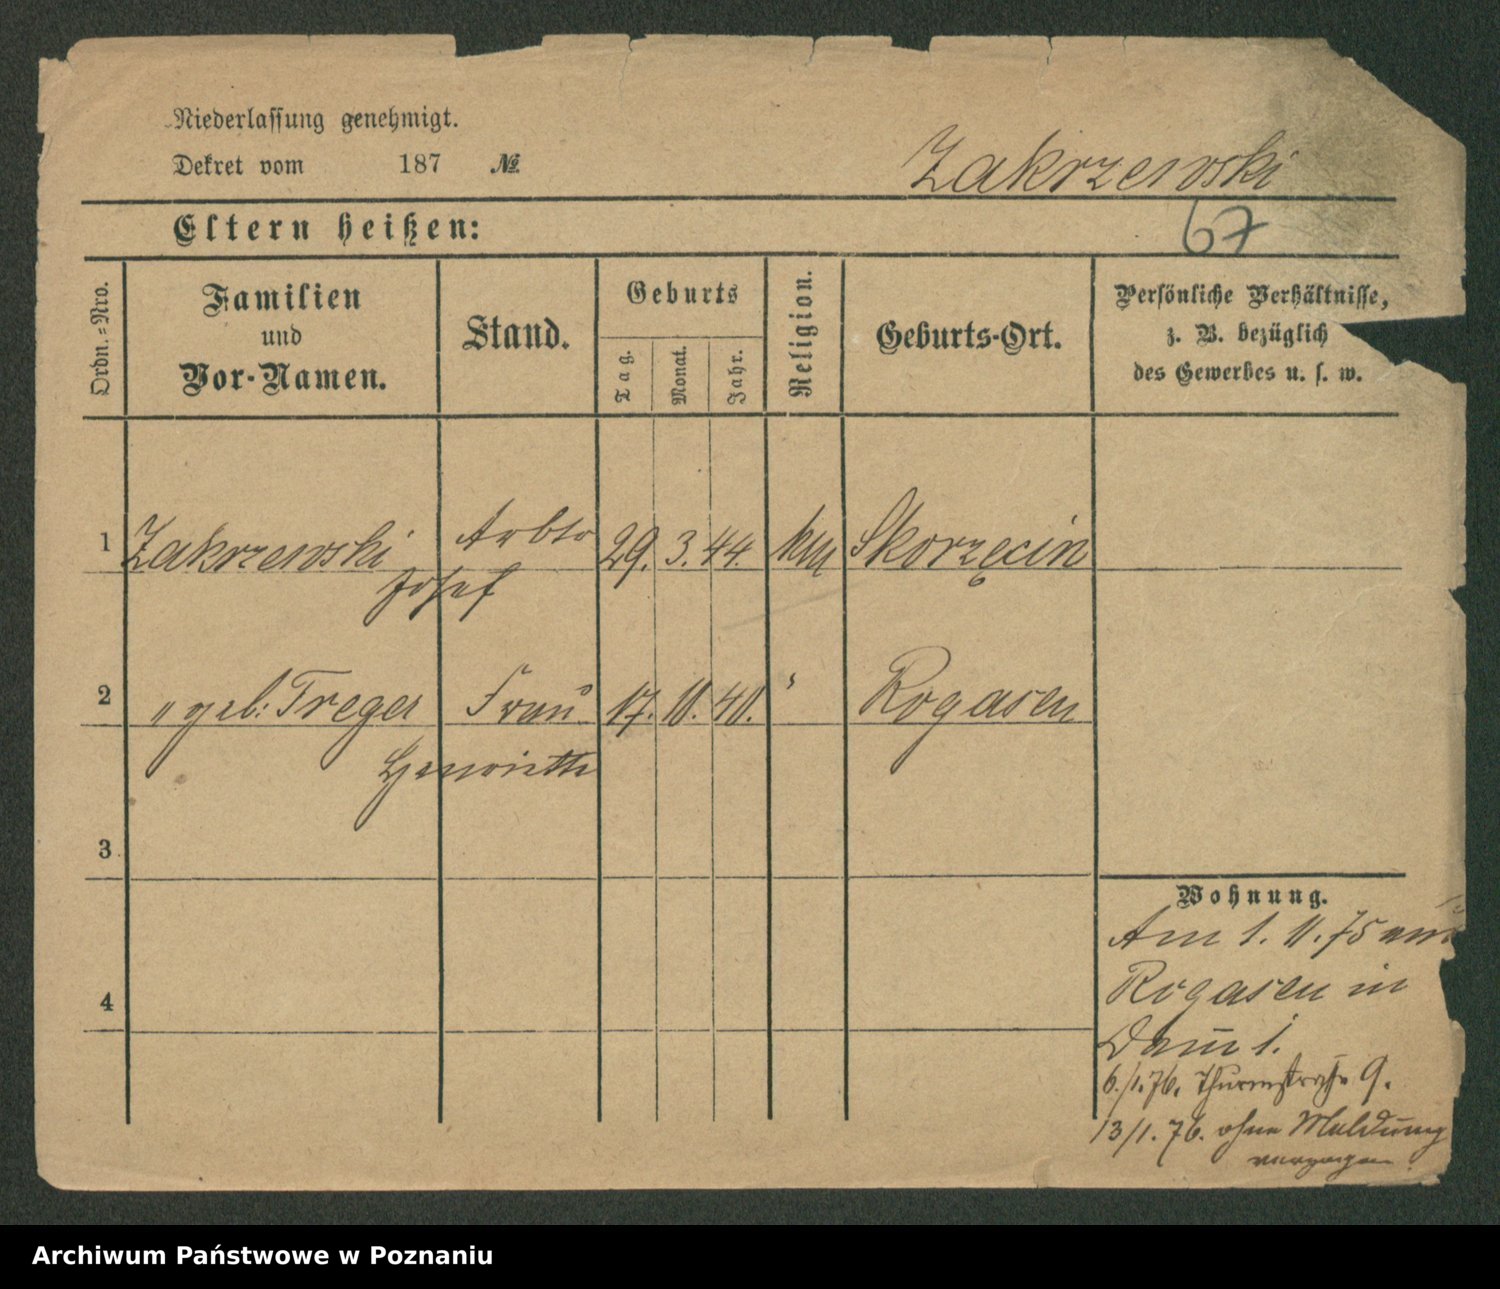 Niederlassung genehmigt.
Dekret vom 187 №
Zakrzewski
67
Eltern heißen:
Ordn.=Nro.
Familien
und
Vor-Namen.
Stand.
Geburts
Tag.
Monat.
Jahr.
Religion.
Geburts-Ort.
Persönliche Verhältnisse,
z. B. bezüglich
des Gewerbes u. s. w.
1 Zakrzewski Arbtr 29. 3. 44. Skorzęcin
Josef
2 " geb: Treger Frau 17. 11. 40. " Rogasen
Henriette
3
4
Wohnung.
Am 1. 11. 75 aus
Rogasen in
Dom 1.
6./1. 76. Thurmstraße 9.
13/1. 76. ohne Meldung
verzogen.
Archiwum Państwowe w Poznaniu